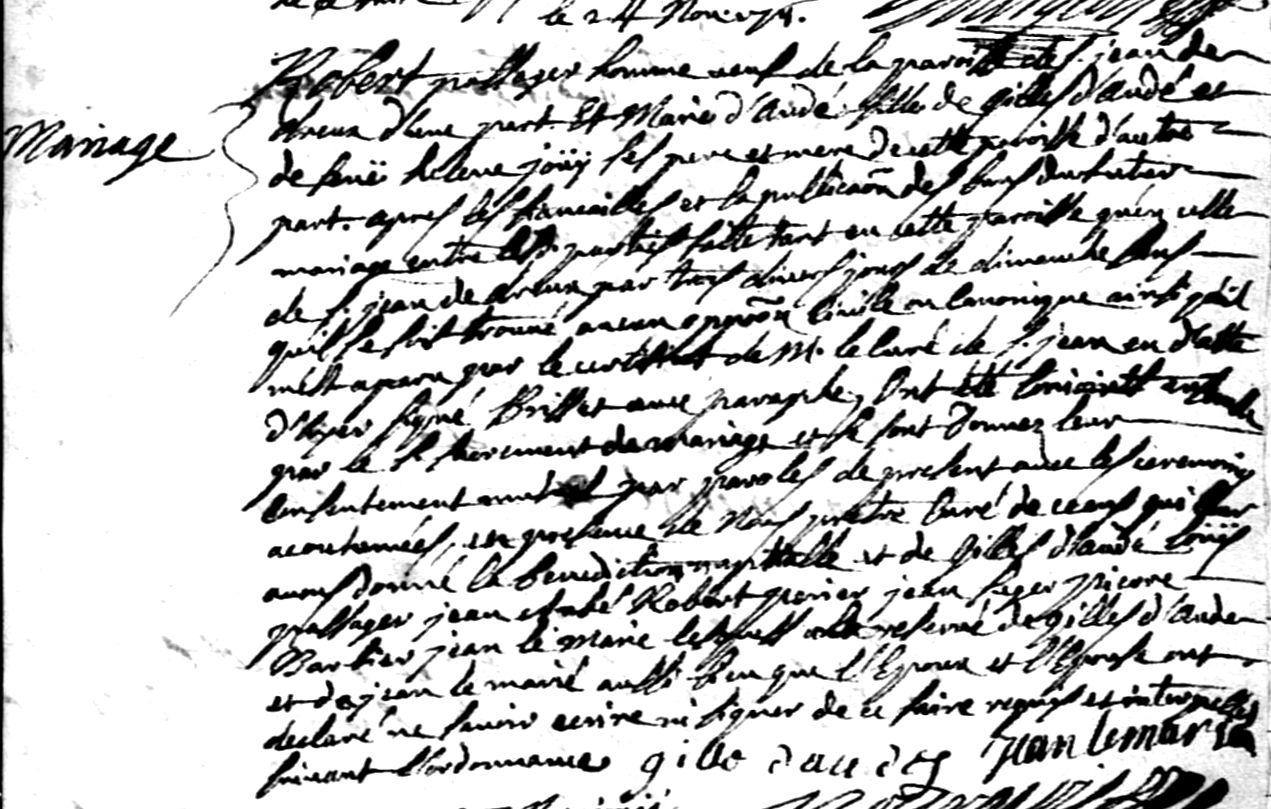 le 24 Nov.
Robert passager homme veuf de la paroisse de S. jean de
dreux d'une part. Et Marie d'Audé fille de gilles d'audé et
Mariage
de feuë helene joüy ses pere et mere de cette paroisse d'autre
part. apres les fiancailles et la publicaõn des bans du futur
mariage entre lesd. parties faitte tant en cette paroisse qu'en celle
de S. jean de dreux par trois divers jours de dimanche sans
qu'il se soit trouué aucun oppoõn ciuille ou canonique ainsi qu'il
m'est aparu par le certificat de M. le Curé de S. jean en datte
d'hyer signé Brillet auec paraphe, Ont été conioints ensemble
par le S. Sacrement de mariage et se sont donnez leur
consentement mutuel par paroles de present auec les ceremonies
acoutumées, en presence de Nous pretre Curé de ceans qui leur
auons donné la benediction nuptialle et de Gilles d'audé Loüis
passager jean Robert perier jean leger pierre
Barbier jean le Marié lesquels a la reserue de gilles d'Audé
et de jean le marié aussi bien que l'Epoux et l'Epouse ont
declaré ne sauoir ecrire ni signer de ce faire requis et interpellés
suiuant l'ordonnance gille daudes jean lemarie